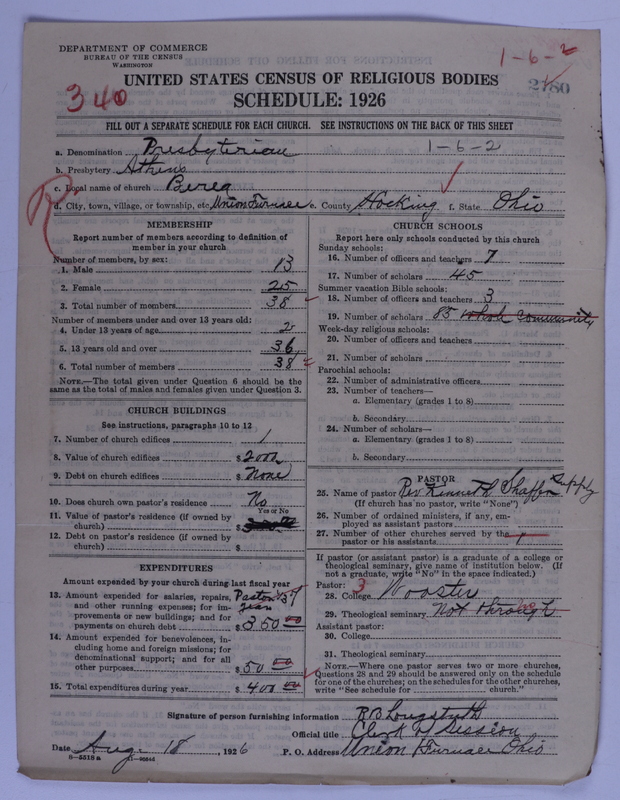 DEPARTMENT OF COMMERCE
BUREAU OF THE CENSUS
WASHINGTON
1-6-2
2780
340
UNITED STATES CENSUS OF RELIGIOUS BODIES
SCHEDULE: 1926
FILL OUT A SEPARATE SCHEDULE FOR EACH CHURCH. SEE INSTRUCTIONS ON THE BACK OF THIS SHEET
a. Denomination Presbyterian 1-6-2
b. Presbytery Athens
c. Local name of church Berea
d. City, town, village, or township, etc. Union Furnace e. County Hocking f. State Ohio
R
MEMBERSHIP
Report number of members according to definition of
member in your church
Number of members, by sex:
1. Male 13
2. Female 25
3. Total number of members 38
Number of members under and over 13 years old:
4. Under 13 years of age 2
5. 13 years old and over 36
6. Total number of members 38
NOTE.—The total given under Question 6 should be the
same as the total of males and females given under Question 3.
CHURCH BUILDINGS
See instructions, paragraphs 10 to 12
7. Number of church edifices 1
8. Value of church edifices $ 2000
9. Debt on church edifices $ None
10. Does church own pastor's residence No
Yes or No
11. Value of pastor's residence (if owned by
church) $
12. Debt on pastor's residence (if owned by
church) $
EXPENDITURES
Amount expended by your church during last fiscal year
13. Amount expended for salaries, repairs,
and other running expenses; for im-
provements or new buildings; and for
payments on church debt $ 350 00
14. Amount expended for benevolences, in-
cluding home and foreign missions; for
denominational support; and for all
other purposes $ 50 00
15. Total expenditures during year $ 400 00
CHURCH SCHOOLS
Report here only schools conducted by this church
Sunday schools:
16. Number of officers and teachers 7
17. Number of scholars 45
Summer vacation Bible schools:
18. Number of officers and teachers 3
19. Number of scholars 85 whole community
Week-day religious schools:
20. Number of officers and teachers
21. Number of scholars
Parochial schools:
22. Number of administrative officers
23. Number of teachers—
a. Elementary (grades 1 to 8)
b. Secondary
24. Number of scholars—
a. Elementary (grades 1 to 8)
b. Secondary
PASTOR
25. Name of pastor Rev Kenneth Shaffer Supply
(If church has no pastor, write "None")
26. Number of ordained ministers, if any, em-
ployed as assistant pastors
27. Number of other churches served by the
pastor or his assistants
If pastor (or assistant pastor) is a graduate of a college or
theological seminary, give name of institution below. (If
not a graduate, write "No" in the space indicated.)
Pastor: 3
28. College Wooster
29. Theological seminary Not through no
Assistant pastor:
30. College
31. Theological seminary
NOTE.—Where one pastor serves two or more churches,
Questions 28 and 29 should be answered only on the schedule
for one of the churches; on the schedules for the other churches,
write "See schedule for church."
Signature of person furnishing information R B Longstreth
Official title Clerk of Session
Date Aug. 18, 1926 P. O. Address Union Furnace Ohio
8-5518 a